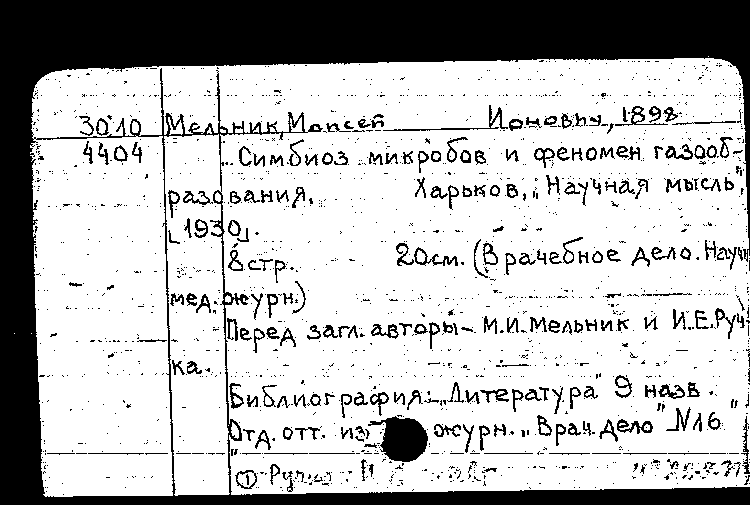 3010 Мельник, Моисей Ионович, 1898
4404 Симбиоз микробов и феномен газооб-
разования. Харьков, „Научная мысль",
[1930].
8 стр. 20 см. (Врачебное дело. Научн
мед. журн.)
Перед загл. авторы - М.И. Мельник и И.Е. Руч-
ка.
Библиография: „Литература" 9 назв.
Отд. отт. из журн. „Врач. дело" №16
"
①